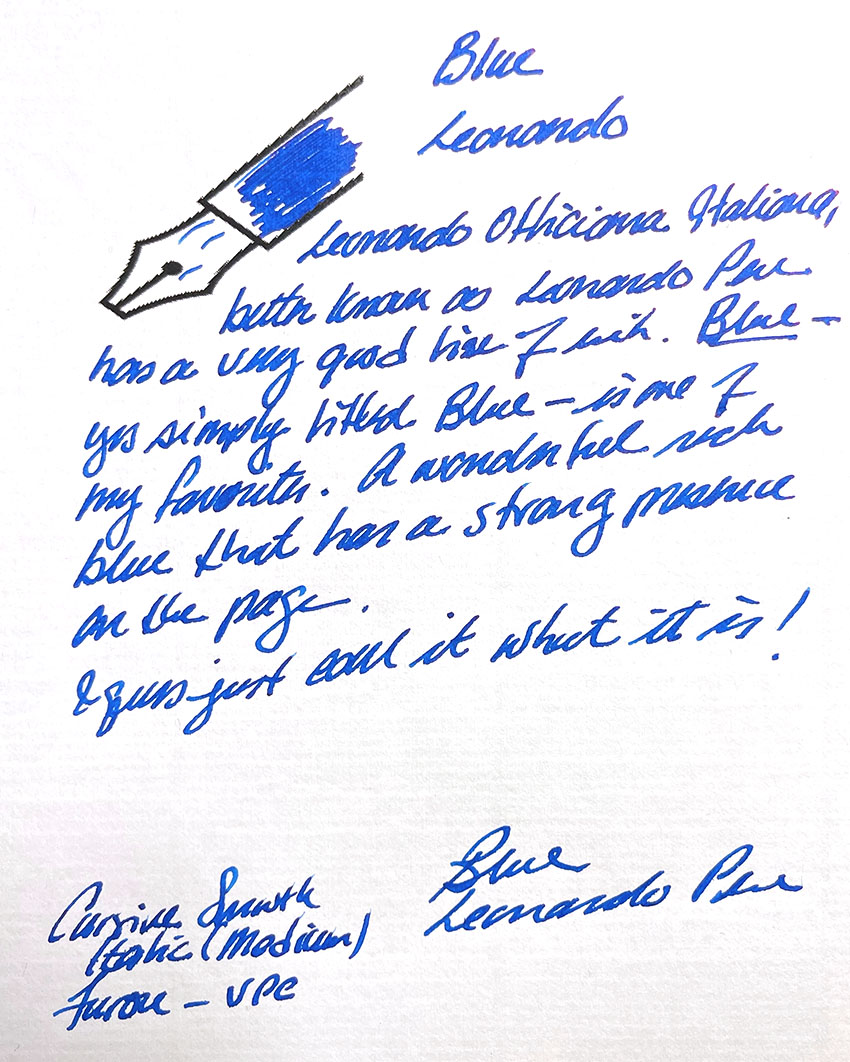 Blue
Leonardo
Leonardo Officiana Italiana,
bettr known as Leonardo Pen
has a very good line of ink. Blue -
yes simply titled Blue - is one of
my favorites. A wonderful rich
blue that has a strong presence
on the page.
I guess just call it what it is!
Blue
Leonardo Pen
Cursive Smooth
Italic (Medium)
Furore - VPC